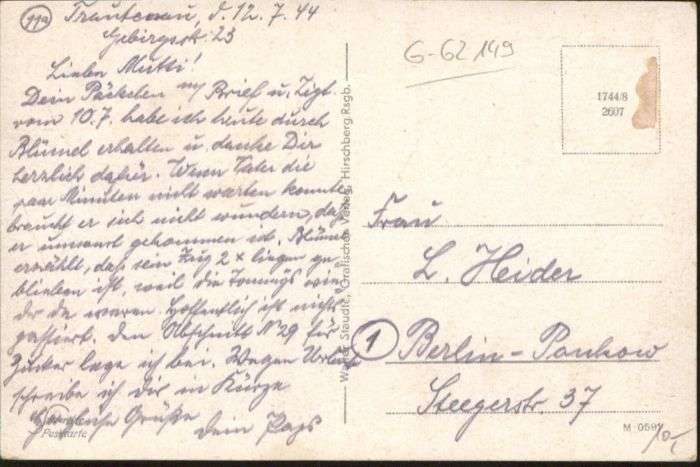 11a
Trautenau, d. 12.7.44
Gebirgsstr. 23
Lieben Mutti!
Dein Päckchen m/ Brief u. Zigt.
vom 10.7. habe ich heute durch
Blümel erhalten u. danke Dir
herzlich dafür. Wenn Vater die
paar Minuten nicht warten konnte
braucht er sich nicht wundern, daß
er umsonst gekommen ist. Blümel
erzählt, daß sein Zug 2 x liegen ge-
blieben ist, weil die Tommys wie-
der da waren. Hoffentlich ist nichts
passiert. Den Abschnitt N° 29 für
Zucker lege ich bei. Wegen Urlaub
schreibe ich Dir in Kürze
Herzliche Grüße
Dein
Postkarte
Walter Staudte, Grafischer Verlag, Hirschberg Rsgb.
G-62 149
1744/8
2607
Frau
L. Heider
1 Berlin-Pankow
Steegerstr. 37
M 0591
10,-